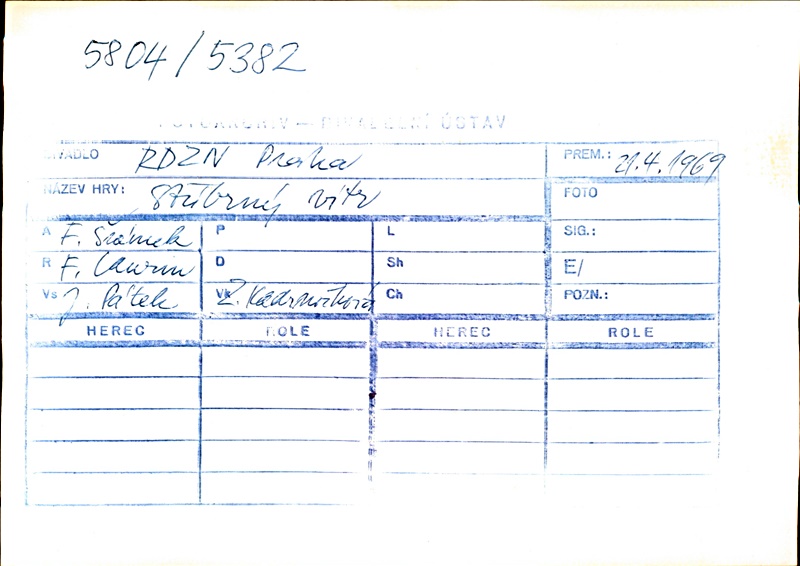 5804/5382
FOTOARCHIV — DIVADELNÍ ÚSTAV
DIVADLO RDZN Praha PREM.: 21.4.1969
NÁZEV HRY: Stříbrný vítr FOTO
A F. Šrámek P L SIG.:
R F. Laurin D Sh E/
Vs J. Pátek Vk Z. Kadrnožková Ch POZN.:
HEREC ROLE HEREC ROLE